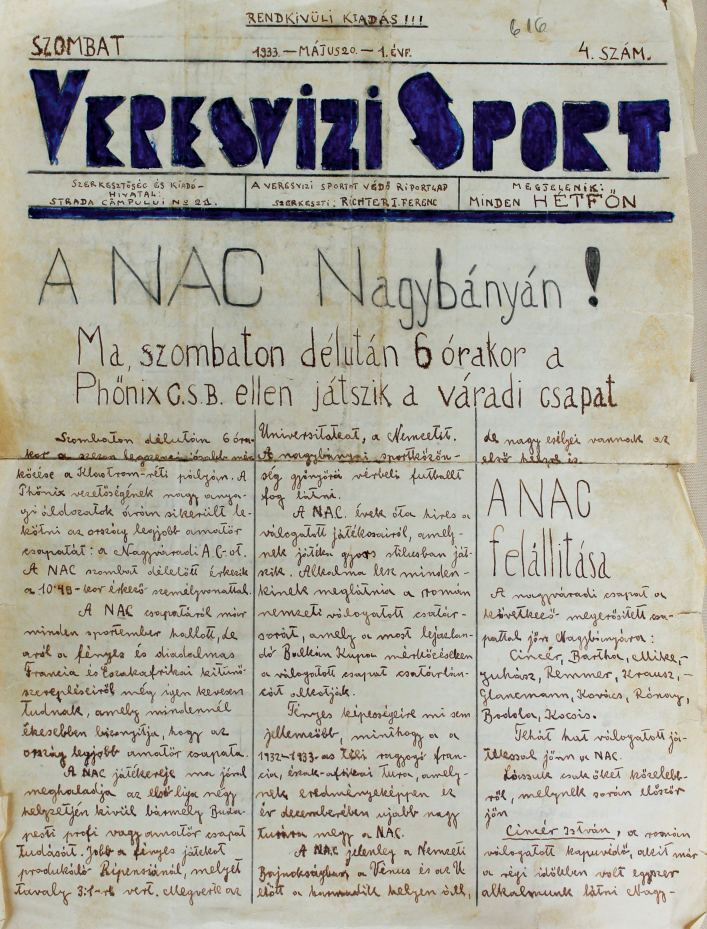 RENDKIVÜLI KIADÁS!!!
616
SZOMBAT
1933.—MÁJUS 20.—1. ÉVF.
4. SZÁM.
VERESVIZI SPORT
SZERKESZTŐSÉG ÉS KIADÓ-
HIVATAL:
STRADA CÂMPULUI No 21.
A VERESVIZI SPORTOT VÉDŐ RIPORTLAP
SZERKESZTI: RICHTER I. FERENC
MEGJELENIK:
MINDEN HÉTFŐN
A NAC Nagybányán!
Ma, szombaton délután 6 órakor a
Phőnix C.S.B. ellen játszik a váradi csapat
Szombaton délután 6 óra-
kor a szezon legszenzációsabb mér-
kőzése a Klastrom-réti pályán. A
Phőnix vezetőségének nagy anya-
gi áldozatok árán sikerült le-
kötni az ország legjobb amatőr
csapatát: a Nagyváradi A.C-ot.
A NAC szombat délelőtt érkezik
a 10·48-kor érkező személyvonattal.
A NAC csapatáról már
minden sportember hallott, de
arról a fényes és diadalmas
Francia és Északafrikai kitünő
szerepléséről még igen kevesen
tudnak, amely mindennél
ékesebben bizonyitja, hogy az
ország legjobb amatőr csapata.
A NAC játékereje ma jóval
meghaladja az első liga négy
helyzetjén kivül bármely Buda-
pesti profi vagy amatőr csapat
tudását. Jobb a fényes játékot
produkáló Ripensiánál, melyet
tavaly 3:1-re vert. Megverte az
Universitateat, a Nemzetit.
A nagybányai sportközön-
ség gyönyörű vérbeli futballt
fog látni.
A NAC. évek óta hires a
válogatott játékosairól, amely-
nek játéka gyors stilusban ját-
szik. Alkalma lesz minden-
kinek meglátnia a román
nemzeti válogatott csatár-
sorát, amely a most lejaszan-
dó Balkán Kupa mérkőzéseken
a válogatott csapat csatárlán-
cát alkotják.
Fényes képességeire mi sem
jellemzőbb, minthogy a
1932-1933-as téli ragyogó fran-
cia, észak-afrikai tura, amely-
nek eredményeképpen ez
év decemberében ujabb nagy
turára megy a NAC.
A NAC jelenleg a Nemzeti
Bajnokságban, a Vénus és az U
előtt a harmadik helyen áll,
de nagy esélyei vannak az
első helyre is.
A NAC
felállitása
A nagyváradi csapat a
következő megerősitett csa-
pattal jön Nagybányára:
Cincér, Bartha, Mike,-
Juhász, Remmer, Krausz,-
Glanzmann, Kovács, Rónay,
Bodola, Kocsis.
Tehát hat válogatott já-
tékossal jönn a NAC.
Lássuk csak őket közelebb-
ről, melynek során először
jön
Cincér István, a román
válogatott kapuvédő, akit már
a régi időkben volt egyszer
alkalmunk látni Nagy-